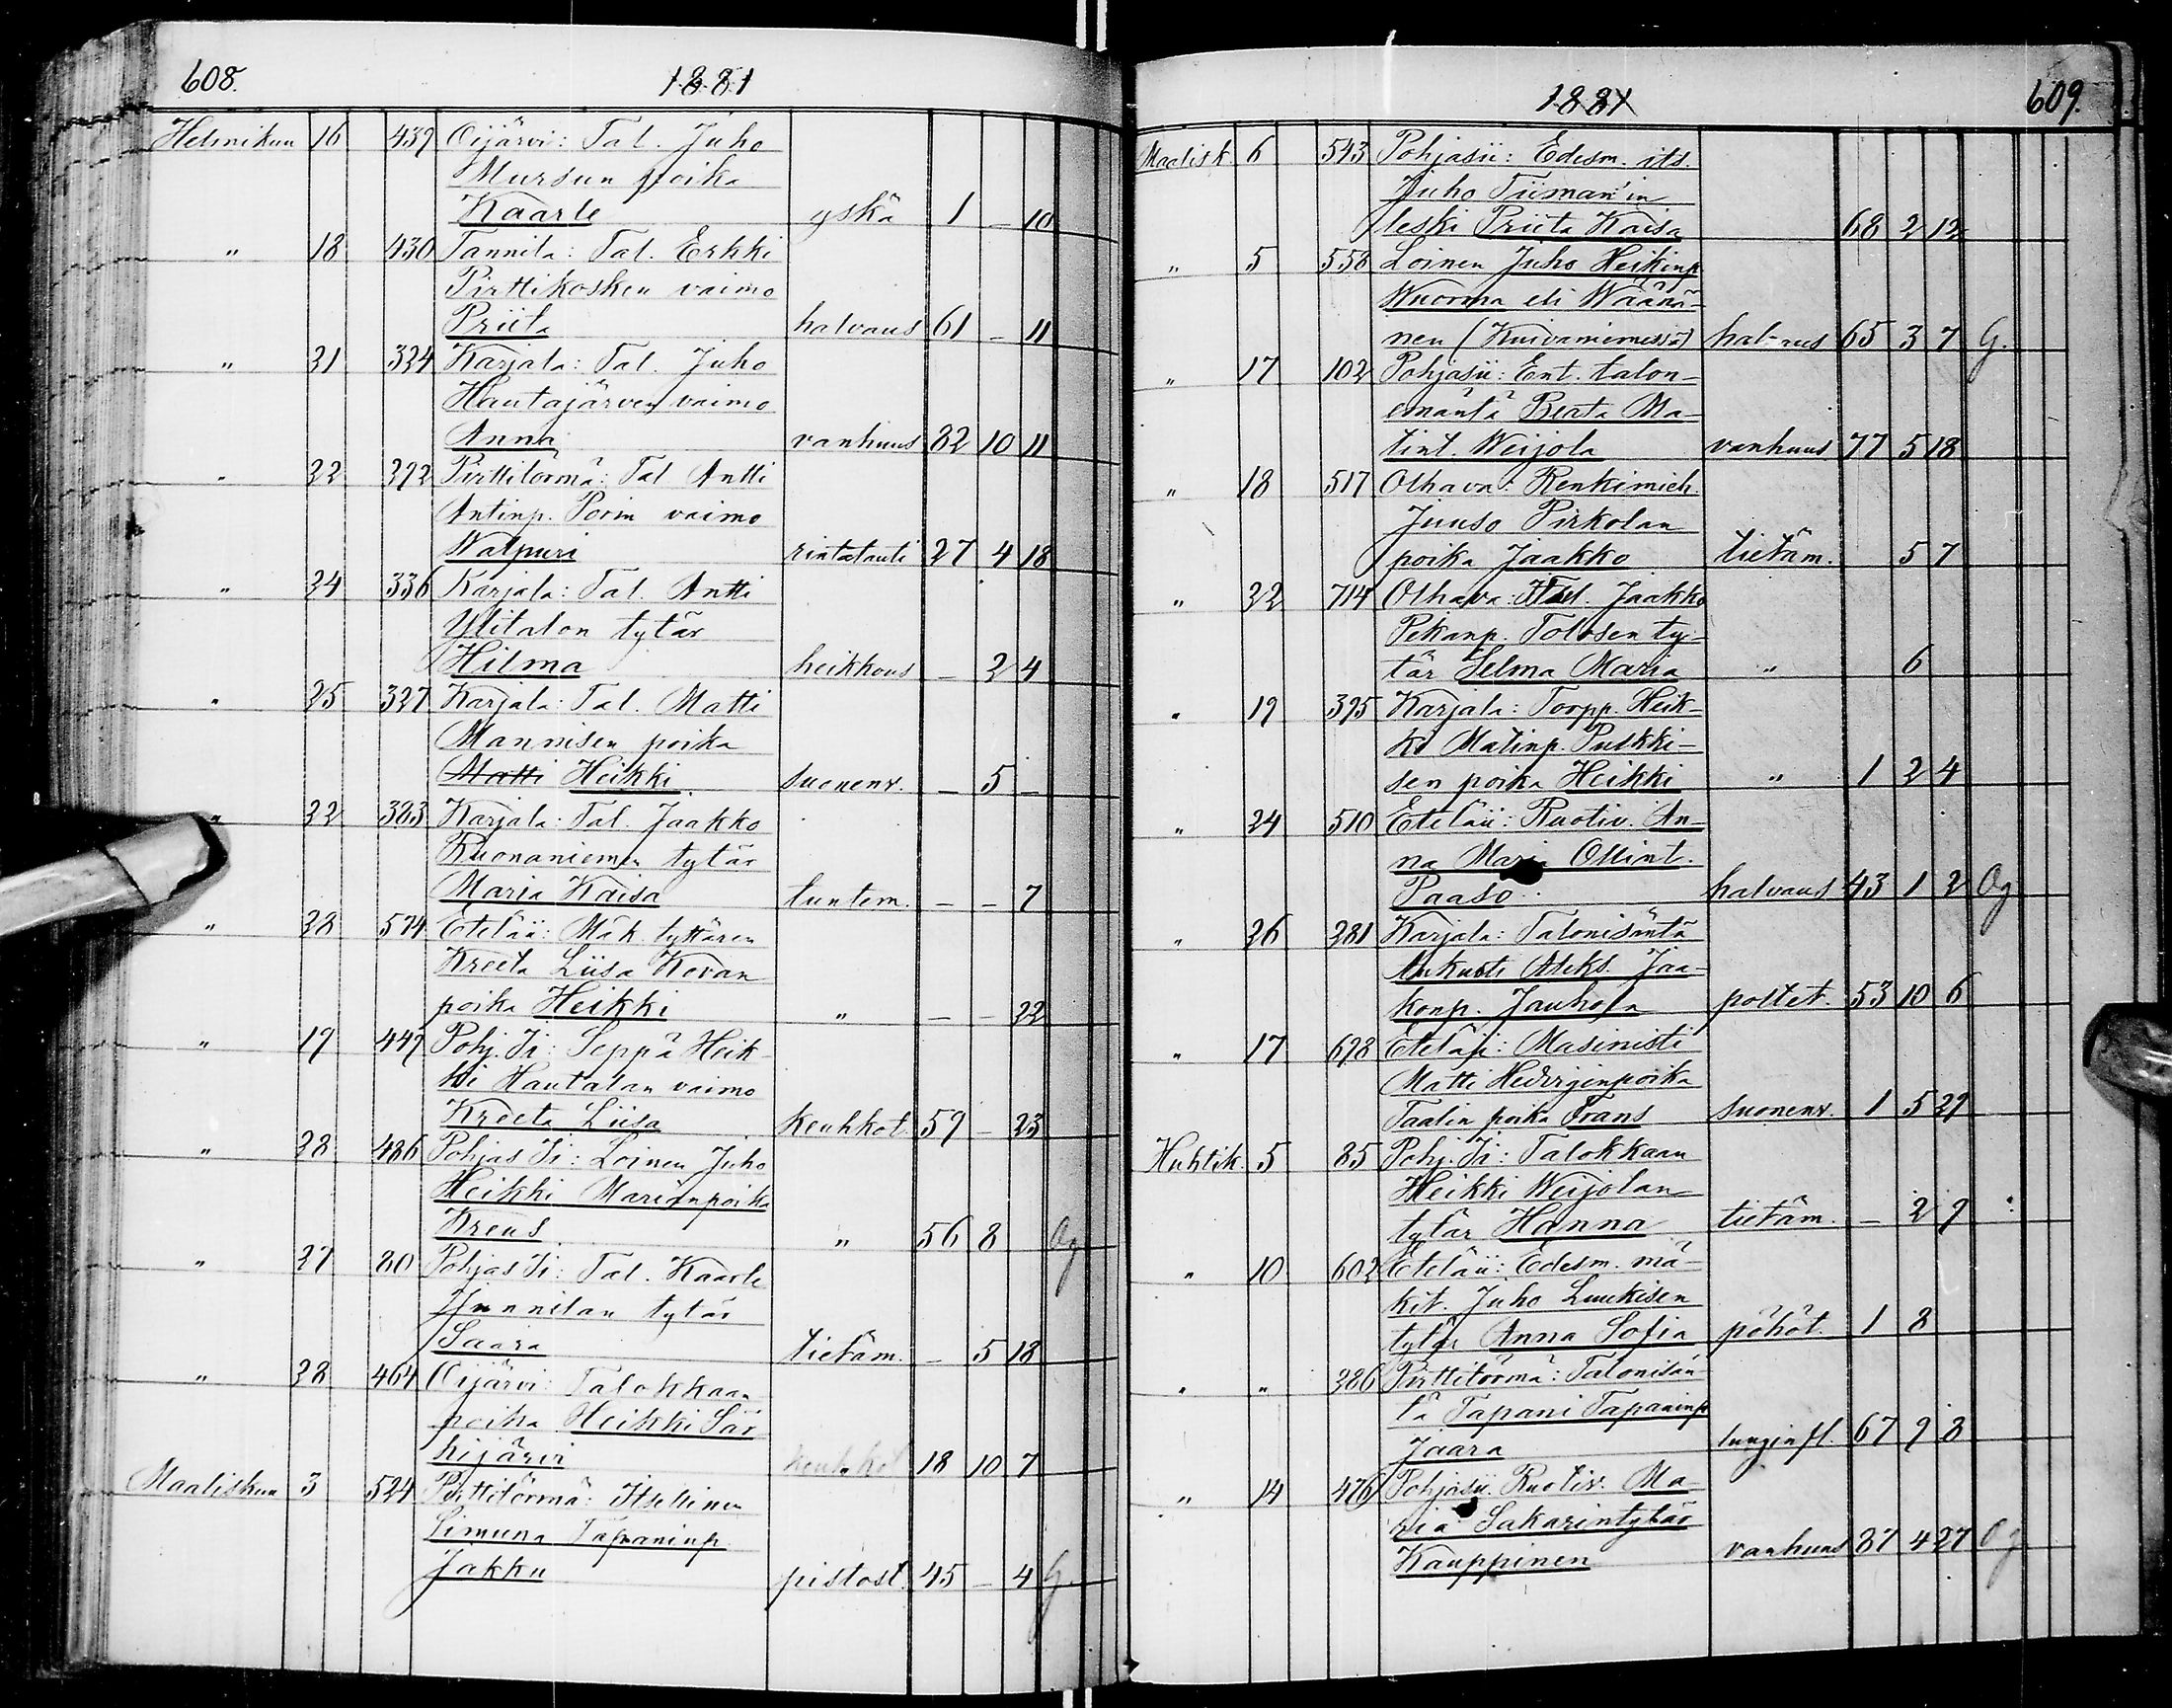 608.
1881
Helmikuu 16 439 Oijärvi: Tal. Juho
Mursun poika
Kaarle yskä 1 – 10
" 18 430 Tannila: Tal. Erkki
Pirttikosken vaimo
Priita halvaus 61 – 11
" 21 324 Karjala: Tal. Juho
Hautajärven vaimo
Anna vanhuus 82 10 11
" 22 292 Pirttitörmä: Tal Antti
Antinp. Porin vaimo
Walpuri rintatauti 27 4 18
" 24 336 Karjala: Tal. Antti
Ylitalon tytär
Hilma heikkous – 2 4
" 25 327 Karjala: Tal. Matti
Mannisen poika
Matti Heikki suonenv. – 5 –
" 22 383 Karjala: Tal. Jaakko
Ruonaniemen tytär
Maria Kaisa tuntem. – – 7
" 28 574 Eteläii: Mäk. tyttären
Kreeta Liisa Kovan
poika Heikki " – – 22
" 19 447 Pohj. Ii: Seppä Heik
ki Hautalan vaimo
Kreeta Liisa keuhkot. 59 – 23
" 28 486 Pohjas Ii: Loinen Juho
Heikki Marianpoika
Kreus " 56 8 Og
" 27 80 Pohjas Ii: Tal. Kaarle
Junnilan tytär
Saara tietäm. – 5 18
" 28 464 Oijärvi: Talokkaan
poika Heikki Sär
kijärvi keuhkot 18 10 7
Maaliskuu 3 524 Pirttitörmä: Itsellinen
Simuna Tapaninp.
Jakku pistost. 45 – 4 G
1881
609.
Maalisk. 6 543 Pohjasii: Edesm. its.
Juho Tiiman'in
leski Priita Kaisa 68 2 12
" 5 558 Loinen Juho Heikinp
Wuorma eli Wäänä-
nen (Kuivaniemessä) halvaus 65 3 7 G.
" 17 102 Pohjasii: Ent. talon-
emäntä Beata Ma-
tint. Weijola vanhuus 77 5 18
" 18 517 Olhava: Renkimieh.
Juuso Pirkolan
poika Jaakko tietäm. 5 7
" 22 714 Olhava: Tal. Jaakko
Pekanp. Tolosen ty-
tär Selma Maria " 6
" 19 395 Karjala: Torpp. Heik-
ki Matinp. Puskki-
sen poika Heikki " 1 2 4
" 24 510 Eteläii: Ruotiv. An-
na Maria Ollint.
Paaso halvaus 43 1 2 Og
" 26 281 Karjala: Talonisäntä
Aukusti Aleks. Jaa-
konp. Jauhola polttet. 53 10 6
" 17 698 Eteläii: Masinisti
Matti Hedvijinpoika
Taalin poika Frans suonenv. 1 5 29
Huhtik. 5 85 Pohj. Ii: Talokkaan
Heikki Weijolan
tytär Hanna tietäm. – 2 9
" 10 602 Eteläii: Edesm. mä-
kit. Juho Luukisen
tytär Anna Sofia pöhöt. 1 8
" " 386 Pirttitörmä: Talonisän
tä Tapani Tapaninp
Jaara lunginfl. 67 9 8
" 14 476 Pohjasii. Ruotiv. Ma-
ria Sakarintytär
Kauppinen vanhuus 87 4 27 Og